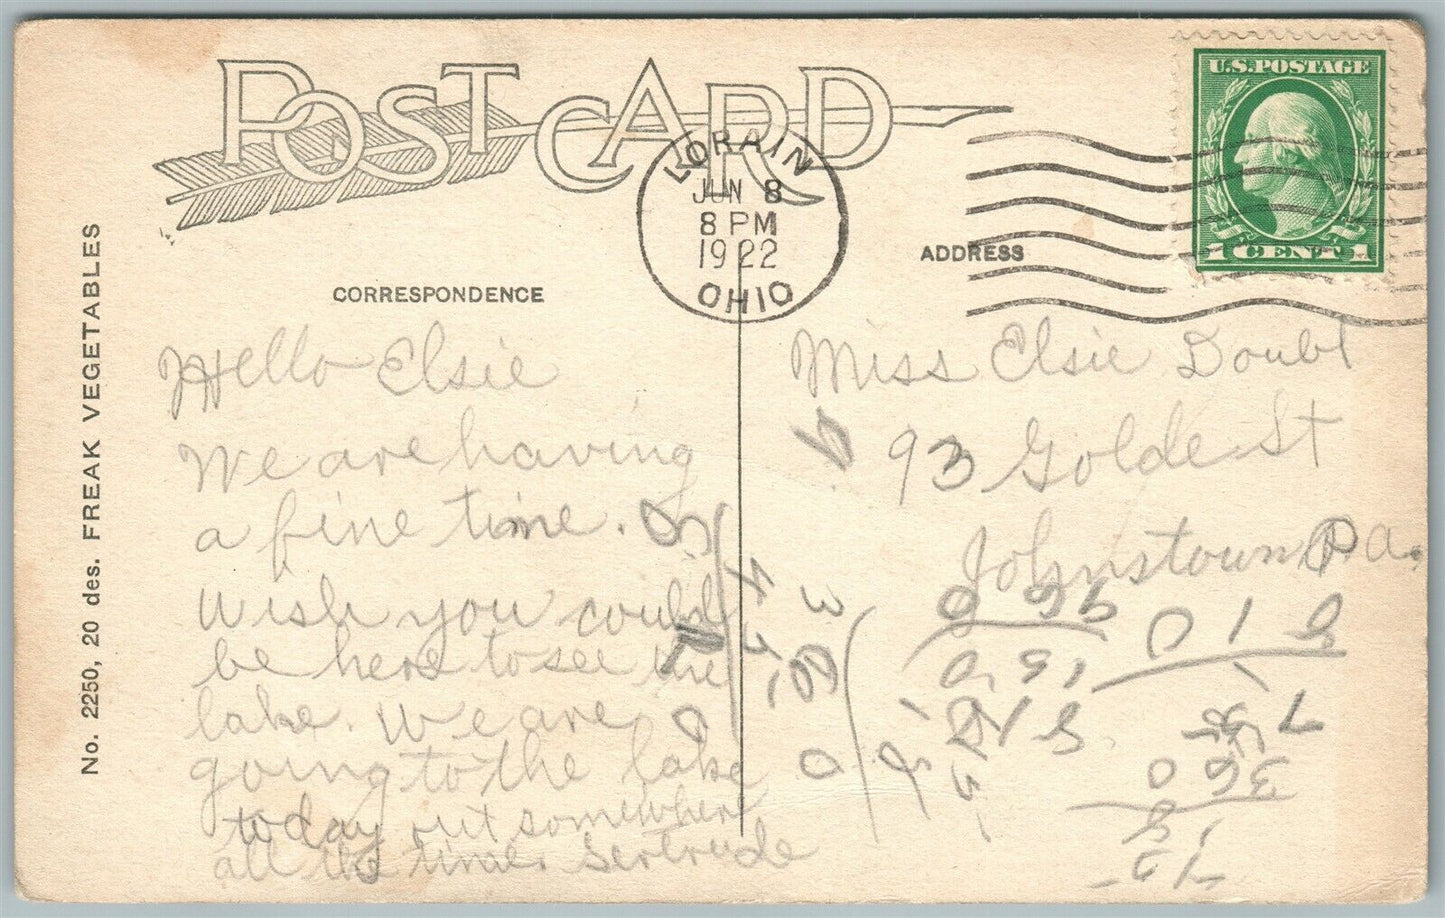 POST CARD
LORAIN
JUN 8
8 PM
1922
OHIO
U.S. POSTAGE
1 CENT 1
CORRESPONDENCE
ADDRESS
No. 2250, 20 des. FREAK VEGETABLES
Hello Elsie
We are having
a fine time.
Wish you could
be here to see the
lake. We are
going to the lake
today out somewhere
all the time. Gertrude
Miss Elsie Doubt
93 Golde St
Johnstown Pa.